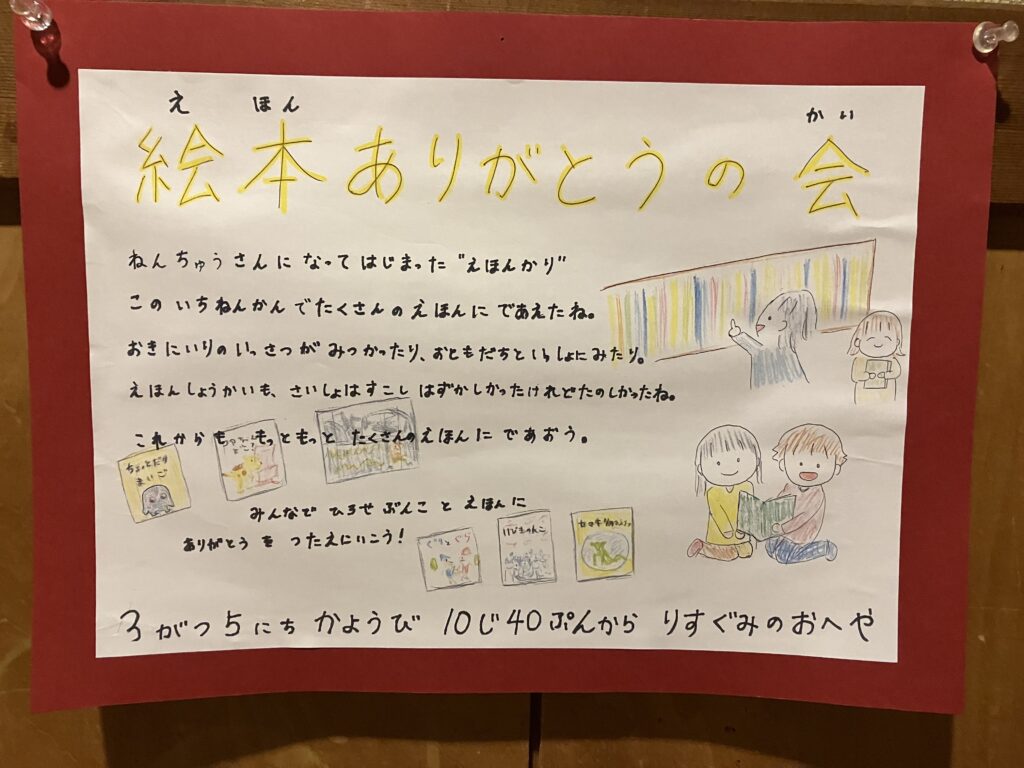 え ほん かい
絵本ありがとうの会
ねんちゅうさんになってはじまった"えほんかり"
このいちねんかんでたくさんのえほんにであえたね。
おきにいりのいっさつがみつかったり、おともだちといっしょにみたり。
えほんしょうかいも、さいしょはすこしはずかしかったけれどたのしかったね。
これからも もっともっと たくさんのえほんにであおう。
ちょっとだけ
まいご
みんなで ひろせ ぶんこ と えほんに
ありがとう を つたえにいこう!
ぐりとぐら
3がつ5にち かようび 10じ40ぷんから りすぐみのおへや